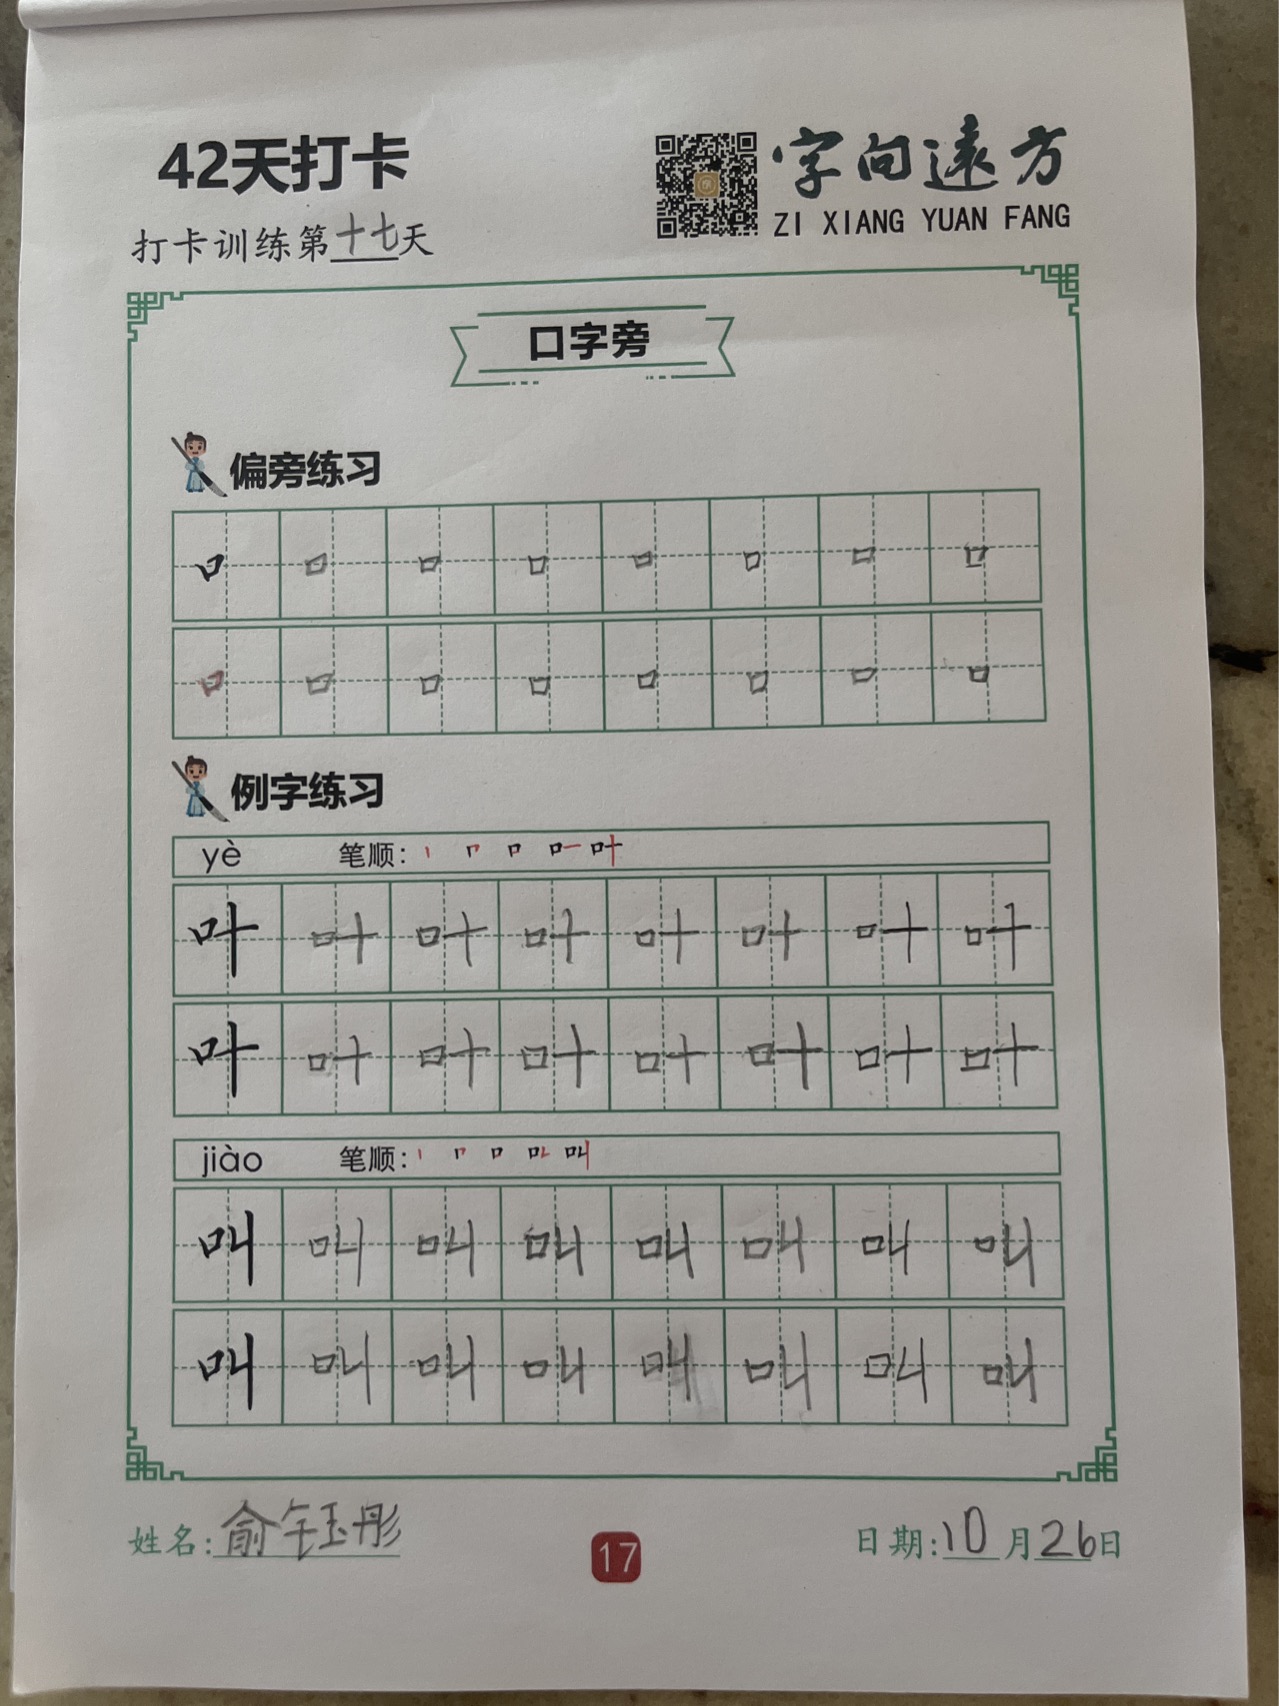 42天打卡
字向遠方
ZI XIANG YUAN FANG
打卡训练第十七天
口字旁
偏旁练习
口 口 口 口 口 口 口 口
口 口 口 口 口 口 口 口
例字练习
yè 笔顺：
叶 叶 叶 叶 叶 叶 叶 叶
叶 叶 叶 叶 叶 叶 叶 叶
jiào 笔顺：
叫 叫 叫 叫 叫 叫 叫 叫
叫 叫 叫 叫 叫 叫 叫 叫
姓名:俞钰彤
17
日期:10月26日